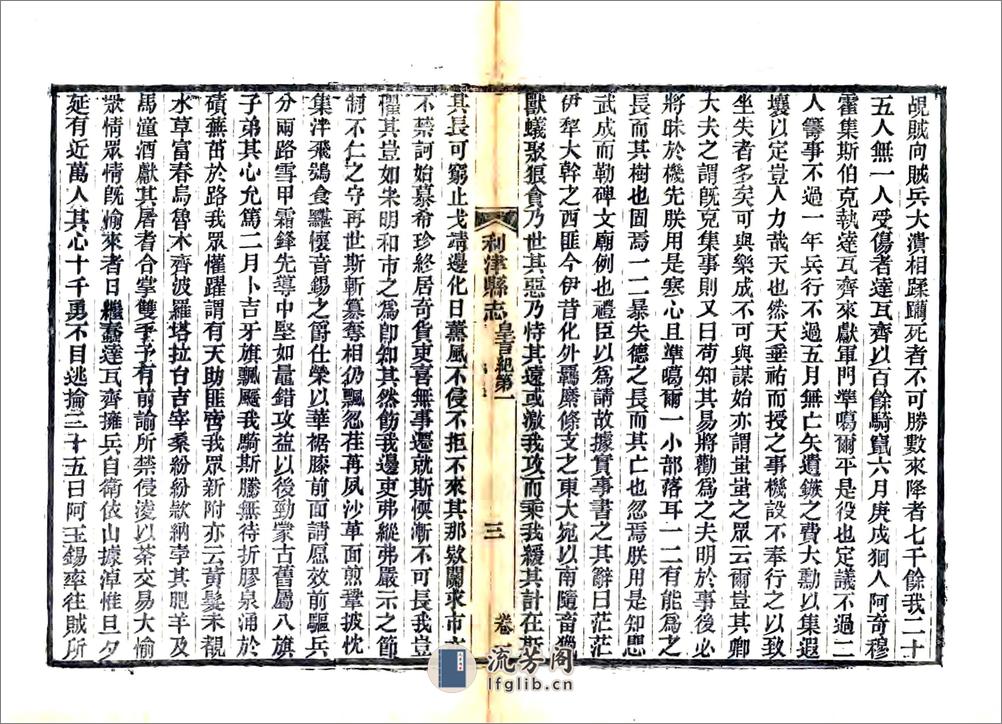 覘賊向賊兵大潰相蹂躪死者不可勝數來降者七千餘我二十
五人無一人受傷者達瓦齊以百餘騎竄六月庚戌猲人阿奇穆
霍集斯伯克執達瓦齊來獻軍門準噶爾平是役也定議不過二
人籌事不過一年兵行不過五月無亡矢遺鏃之費大勳以集遐
壤以定豈人力哉天也然天垂祐而授之事機設不奉行之以致
坐失者多矣可與樂成不可與謀始亦謂蚩蚩之眾云爾豈其卿
大夫之謂旣克集事則又曰苟知其易將勸為之夫明於事後必
將昧於機先朕用是寒心且準噶爾一小部落耳一二有能為之
長而其樹也固焉一二暴失德之長而其亡也忽焉朕用是知思
武成而勒碑文廟例也禮臣以為請故據實事書之其辭曰茫茫
伊犁大幹之西匪今伊昔化外羈縻條支之東大宛以南隨畜獵
獸蟻聚狼貪乃世其惡乃恃其遠或激我攻而乘我緩其計在斯
利津縣志 皇言紀第一 三 卷
其長可窮止戈靖邊化日薰風不侵不拒不來其那欵關求市亦
不禁訶始慕希珍終居奇貨吏喜無事遷就斯愞漸不可長我豈
懼其豈如宋明和市之為卽知其然飭我邊吏弗縱弗嚴示之節
制不仁之守再世斯斬篡奪相仍飄忽荏苒夙沙革面煎鞏披忱
集泮飛鴞食黮懷音錫之爵仕榮以華裾膝前面請愿效前驅兵
分兩路雪甲霜鋒先導中堅如鼂錯攻益以後勁蒙古舊屬八旗
子弟其心允篤二月卜吉牙旗飄颺我騎斯騰無待折膠泉涌於
磧蕪茁於路我眾懽躍謂有天助匪啻我眾新附亦云黃髮未覩
水草富春烏魯木齊波羅塔拉台吉宰桑紛紛欵納牽其肥羊及
馬湩酒獻其屠者合掌雙手予有前諭所禁侵淩以茶交易大愉
眾情眾情旣愉來者日繼蠢達瓦齊擁兵自衛依山據淖惟旦夕
延有近萬人其心十千勇不目逃掄二十五曰阿玉錫率往賊所
流芳阁
lfglib.cn